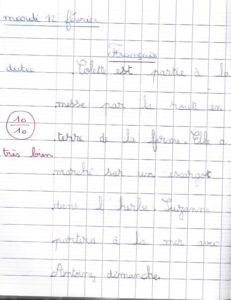 mardi 12 février
Français
dictée Colette est partie à la
messe par la route en
10/10 terre de la ferme. Elle a
très bien marché sur un escargot
dans l'herbe. Suzanne
partira à la mer avec
Antoine dimanche.